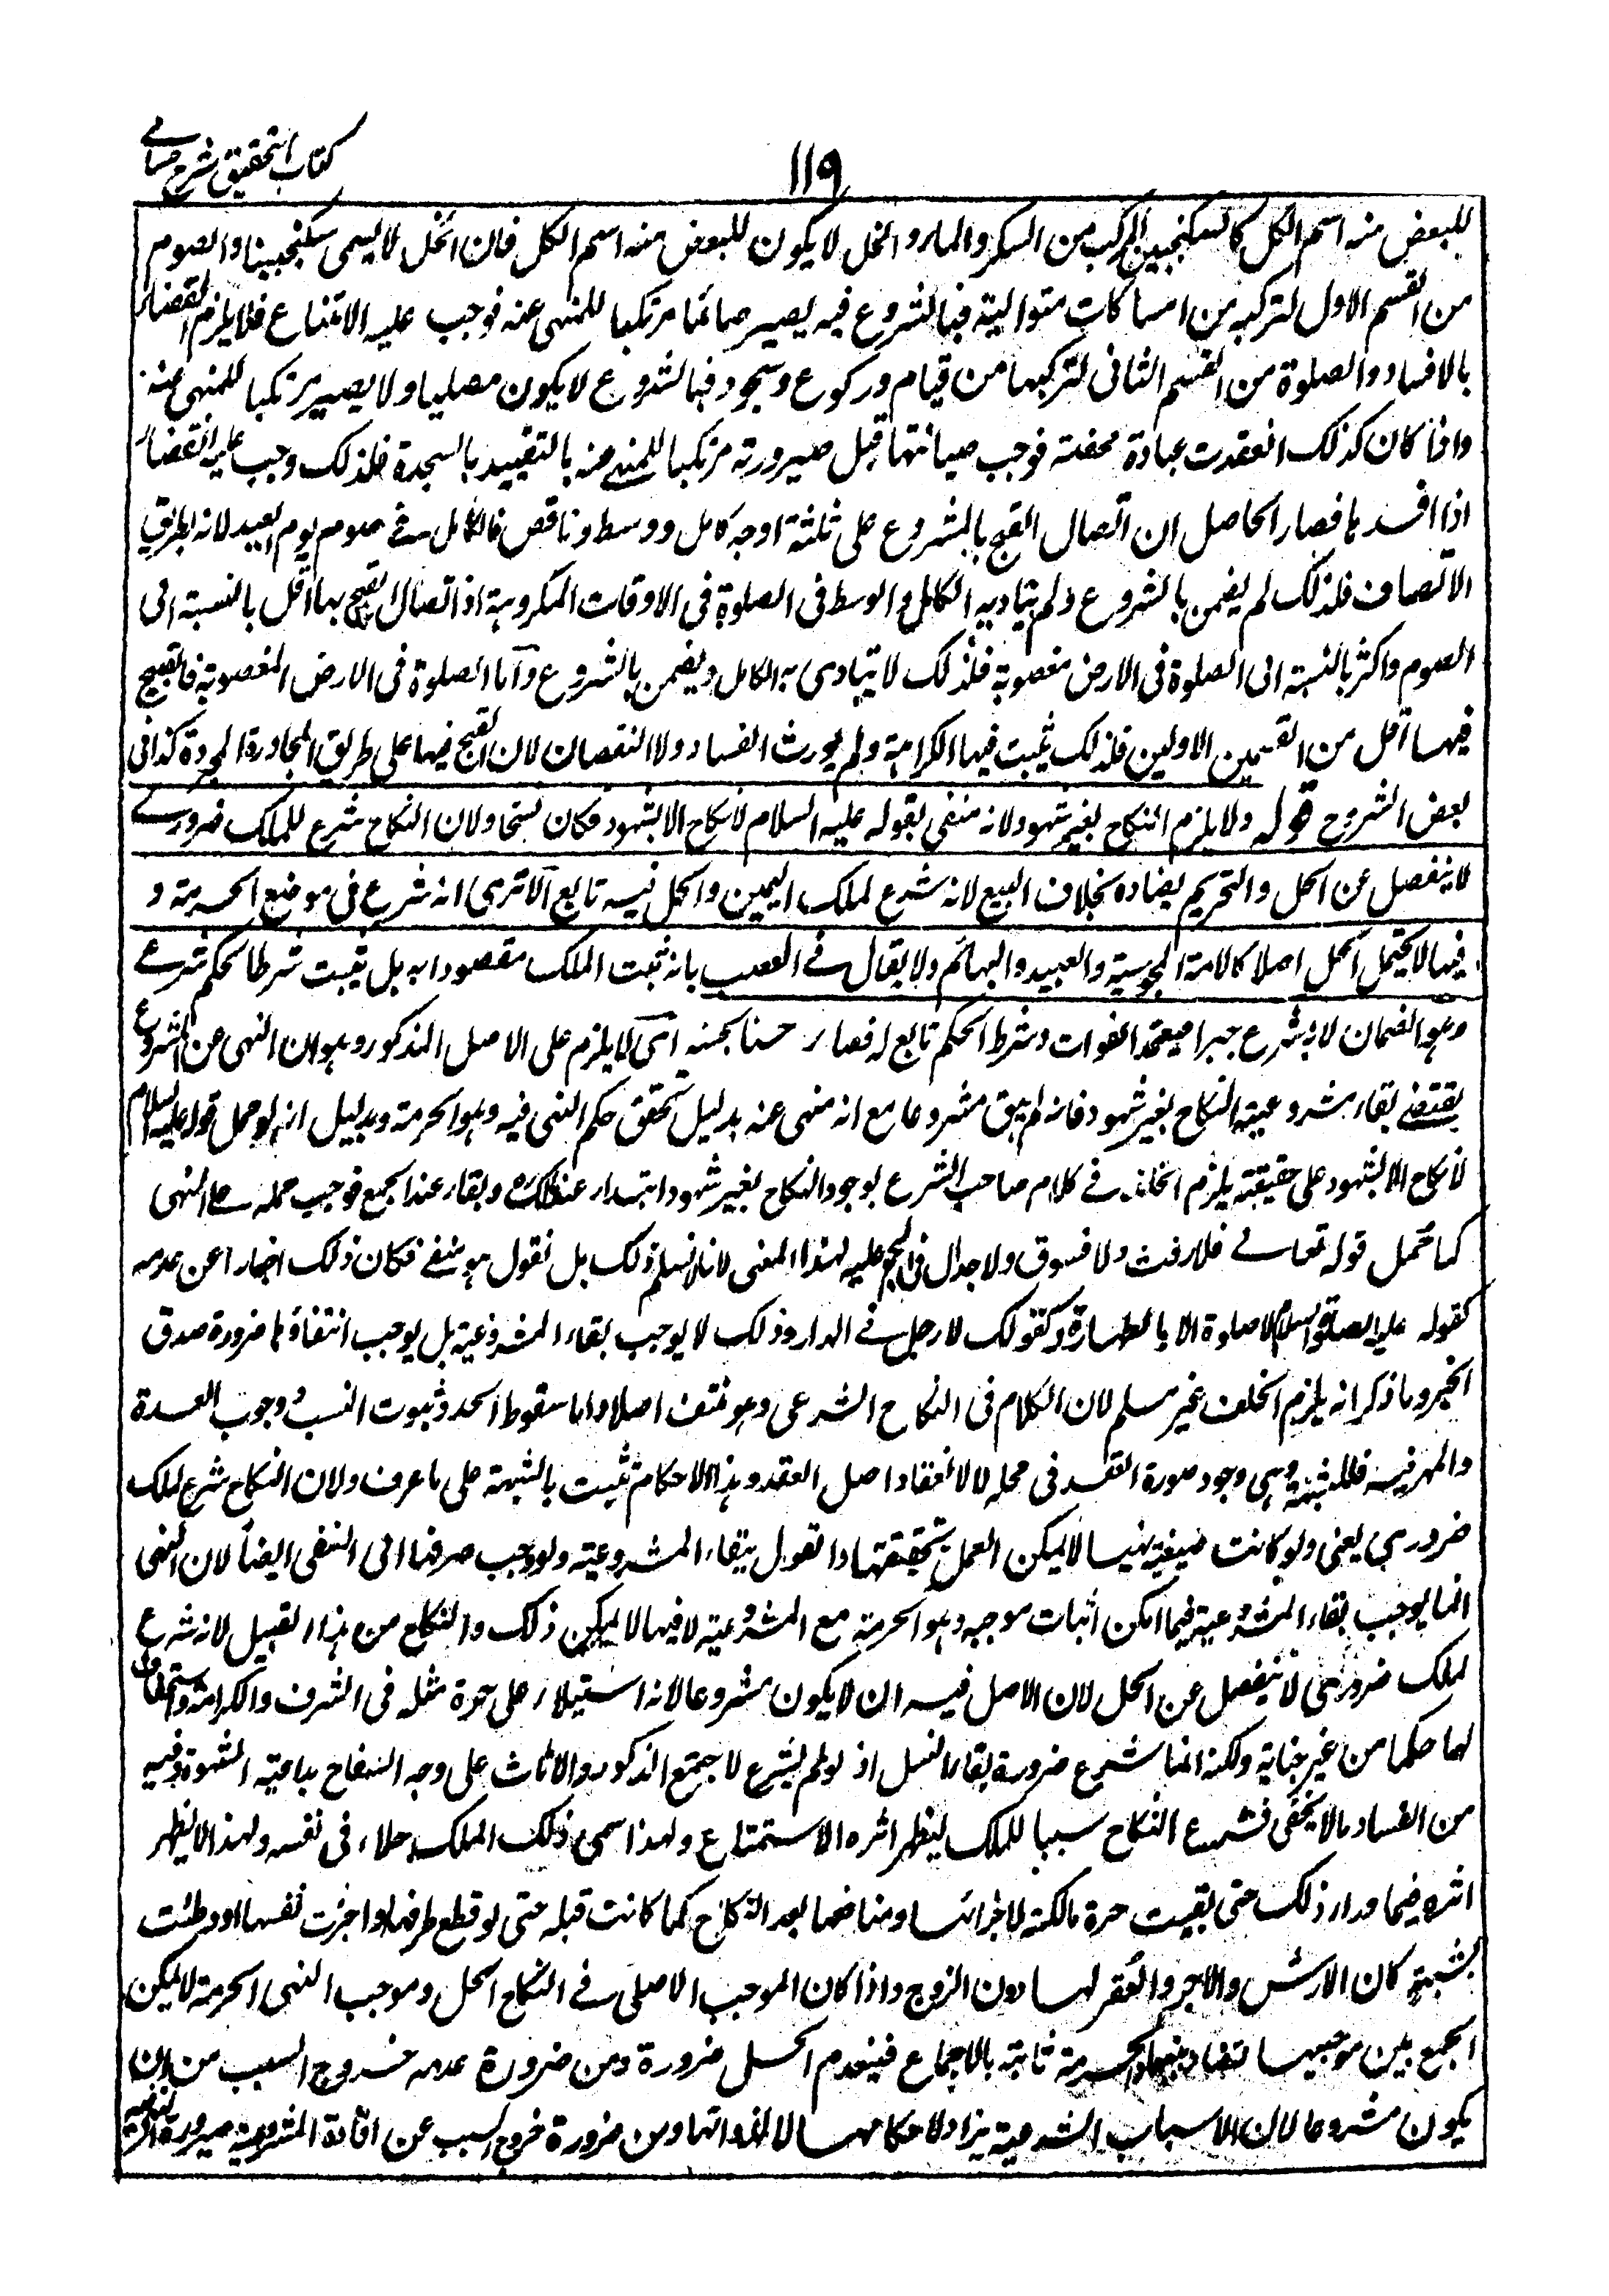 كتاب التحقيق شرح حسامي
١١٩
للبعض منه اسم الكل كالسكنجبين المركب من السكر والماء والخل لا يكون للبعض منه اسم الكل فان الخل لا يسمى سكنجبينا والصوم
من القسم الاول لتركبه من امساكات متوالية فبالشروع فيه يصير صائما مرتكبا للمنهى عنه فوجب عليه الامتناع فلا يلزم القضاء
بالافساد والصلوة من القسم الثانى لتركبها من قيام وركوع وسجود فبالشروع لا يكون مصليا ولا يصير مرتكبا للمنهى عنه
واذا كان كذلك انعقدت عبادة محضة فوجب صيانتها قبل صيرورته مرتكبا للمنهى عنه بالتقييد بالسجدة فلذلك وجب عليه القضاء
اذا افسدها فصار الحاصل ان اتصال القبح بالمشروع على ثلثة اوجه كامل ووسط وناقص فالكامل فى صوم يوم العيد لانه بطريق
الاتصاف فلذلك لم يضمن بالشروع ولم يتاد به الكامل والوسط فى الصلوة فى الاوقات المكروهة اذ اتصال القبح بها اقل بالنسبة الى
الصوم واكثر بالنسبة الى الصلوة فى الارض مغصوبة فلذلك لا يتادى به الكامل ويضمن بالشروع واما الصلوة فى الارض المغصوبة فالقبح
فيها اقل من القسمين الاولين فلذلك ثبتت فيها الكراهة ولم يورث الفساد ولا النقصان لان القبح فيها على طريق المجاورة المجردة كذا فى
بعض الشروح قوله ولا يلزم النكاح بغير شهود لانه منفى بقوله عليه السلام لا نكاح الا بشهود فكان نسخا ولان النكاح شرع للملك ضرورى
لا ينفصل عن الحل والتحريم يضاده بخلاف البيع لانه شرع لملك اليمين والحل فيه تابع الا ترى انه شرع فى موضع الحرمة و
فيما لا يحتمل الحل اصلا كالامة المجوسية والعبيد والبهائم ولا يقال فى الغصب بانه ثبت الملك مقصودا به بل يثبت شرطا لحكم شرعى
وهو الضمان لانه شرع جبرا فيعتمد الفوات وشرط الحكم تابع له فصار حسنا بحسنه اى لا يلزم على الاصل المذكور وهو ان النهى عن المشروع
يقتضى بقاء مشروعيته النكاح بغير شهود فانه لم يبق مشروعا مع انه منهى عنه بدليل تحقق حكم النهى فيه وهو الحرمة وبدليل انه لو حمل قوله عليه السلام
لا نكاح الا بشهود على حقيقته يلزم الخلف فى كلام صاحب الشرع لوجود النكاح بغير شهود ابتداء عند مالك وبقاء عند الجميع فوجب حمله على النهى
كما حمل قوله تعالى فلا رفث ولا فسوق ولا جدال فى الحج عليه لهذا المعنى لانا لا نسلم ذلك بل نقول هو منفى فكان ذلك اخبارا عن عدمه
كقوله عليه الصلوة والسلام لا صلوة الا بالطهارة وكقولك لا رجل فى الدار وذلك لا يوجب بقاء المشروعية بل يوجب انتفاؤها ضرورة صدق
الخبر وما ذكر انه يلزم الخلف غير مسلم لان الكلام فى النكاح الشرعى وهو منتف اصلا واما سقوط الحد وثبوت النسب ووجوب العدة
والمهر فيه فللشبهة وهى وجود صورة العقد فى محله لا لانعقاد اصل العقد وهذه الاحكام تثبت بالشبهة على ما عرف ولان النكاح شرع لملك
ضرورى يعنى ولو كانت صيغته نهيا لا يمكن العمل بحقيقتها والقول ببقاء المشروعية ولوجب صرفها الى النفى ايضا لان النهى
انما يوجب بقاء المشروعية فيما امكن اثبات موجبه وهو الحرمة مع المشروعية لا فيما لا يمكن ذلك والنكاح من هذا القبيل لانه شرع
لملك ضرورى لا ينفصل عن الحل لان الاصل فيه ان لا يكون مشروعا لانه استيلاء على حرة مثله فى الشرف والكرامة واستحقاق
لها حكما من غير جناية ولكنه انما شرع ضرورة بقاء النسل اذ لو لم يشرع لاجتمع الذكور والاناث على وجه السفاح بداعية الشهوة وفيه
من الفساد ما لا يخفى فشرع النكاح سببا للملك ليظهر اثره الاستمتاع ولهذا سمى ذلك الملك حلاء فى نفسه ولهذا لا يظهر
اثره فيما وراء ذلك حتى بقيت حرة مالكة لاجزائها ومنافعها بعد النكاح كما كانت قبله حتى لو قطع طرفها او اجرت نفسها او وطئت
بشبهة كان الارش والاجر والعقر لها دون الزوج واذا كان الموجب الاصلى فى النكاح الحل وموجب النهى الحرمة لا يمكن
الجمع بين موجبيها لتضاد بينهما والحرمة ثابتة بالاجماع فينعدم الحل ضرورة ومن ضرورة عدمه خروج السبب من ان
يكون مشروعا لان الاسباب الشرعية يراد لاحكامها لا لذواتها ومن ضرورة خروج السبب عن افادة المشروعية صيرورة النهى